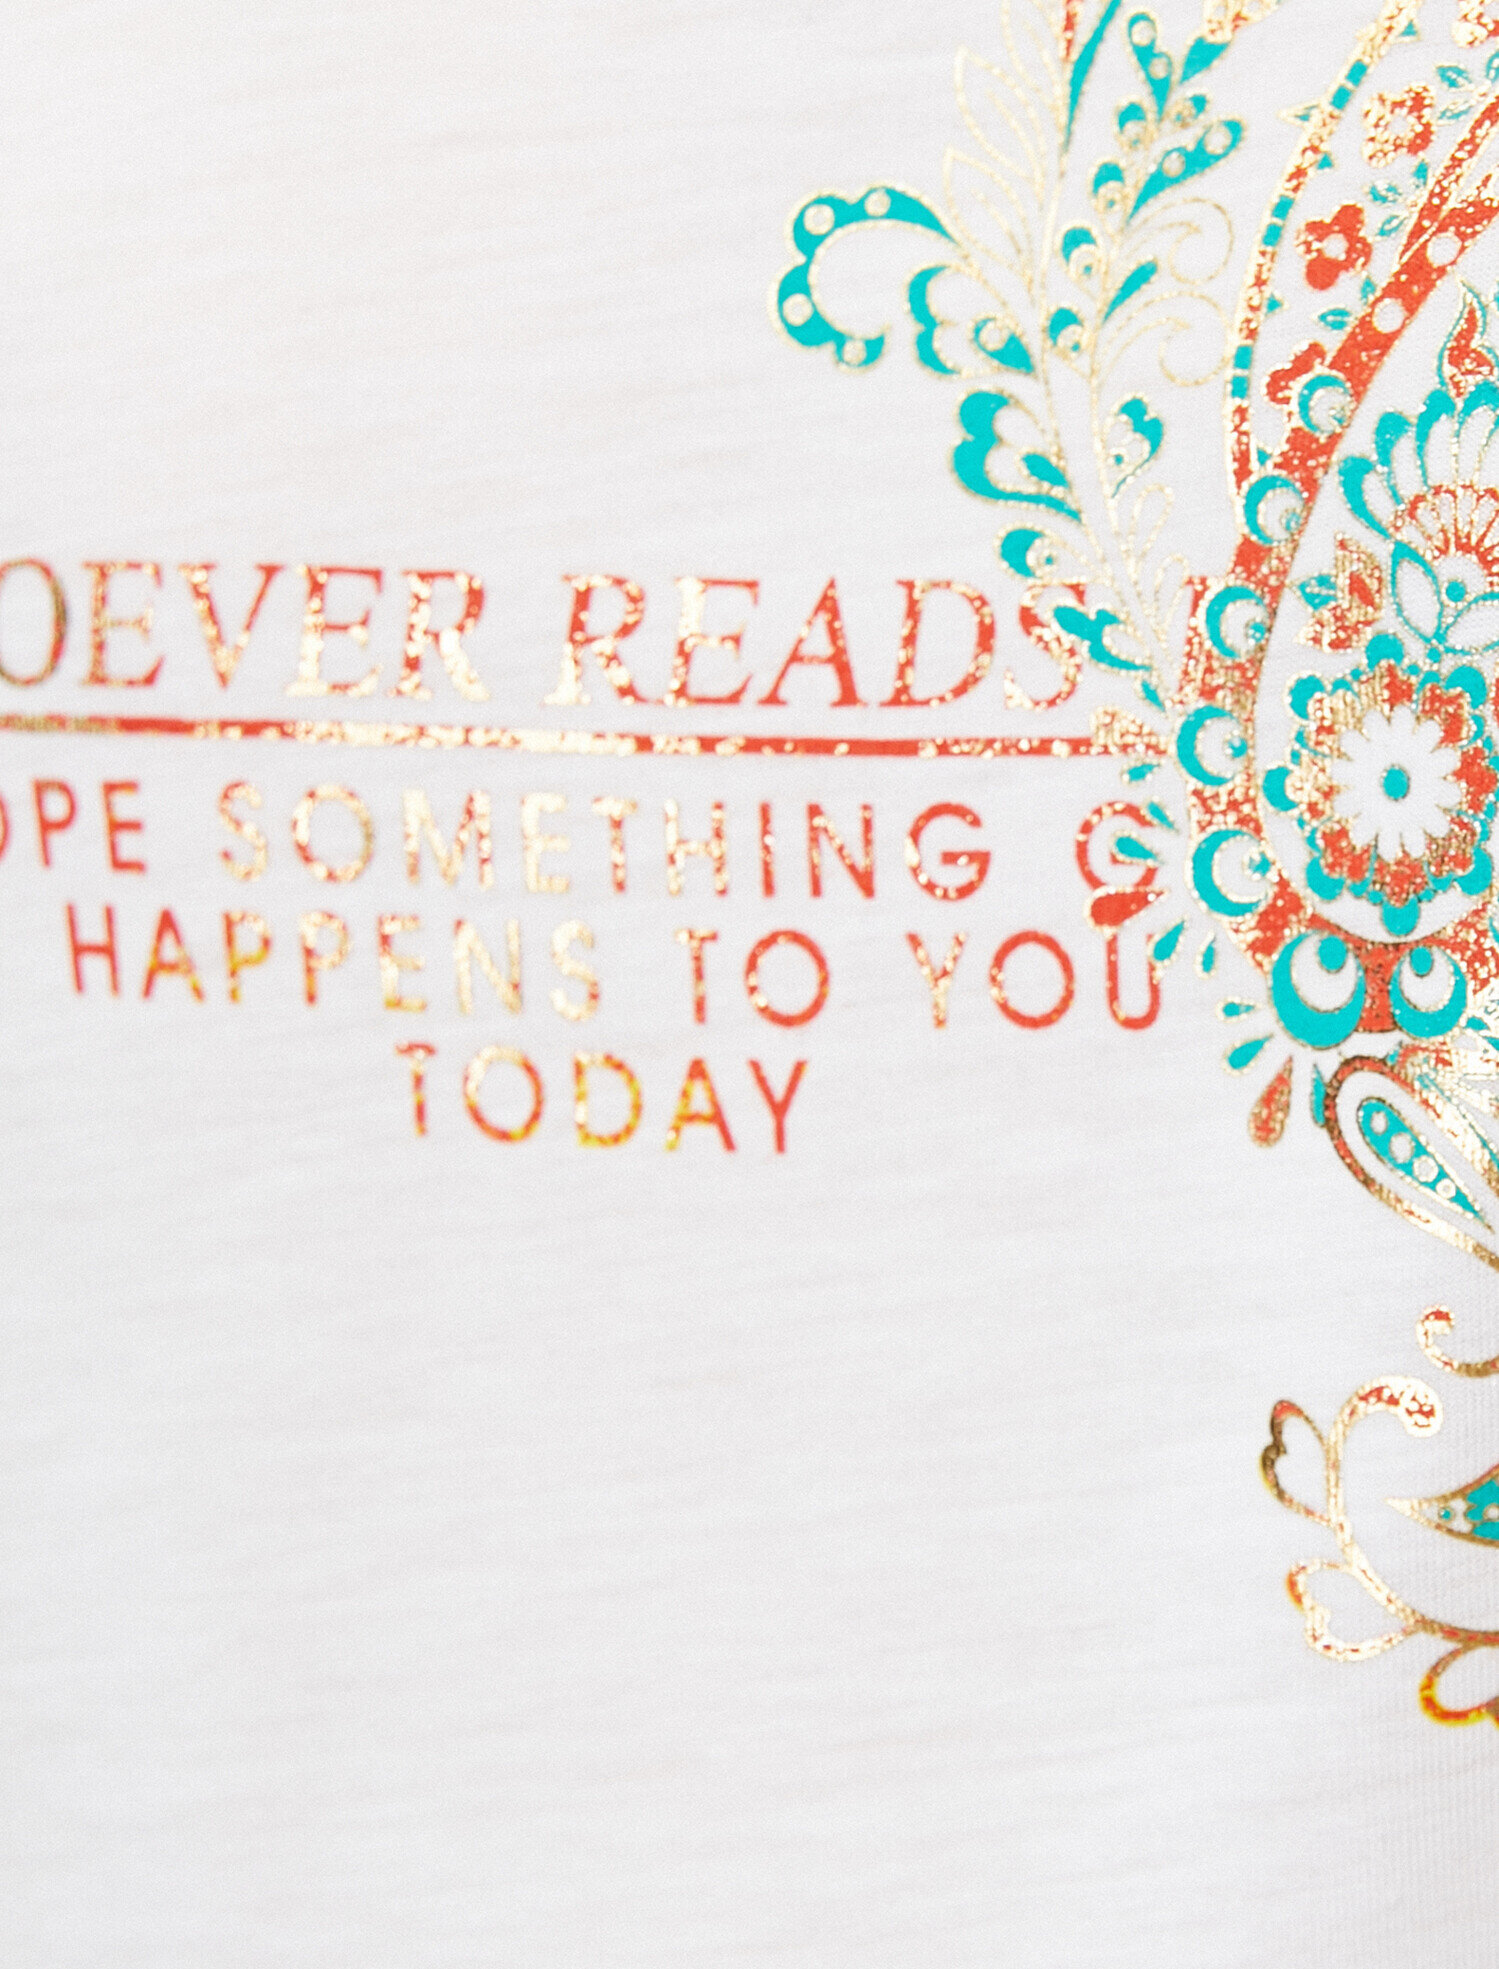 OEVER READS
OPE SOMETHING G
HAPPENS TO YOU
TODAY